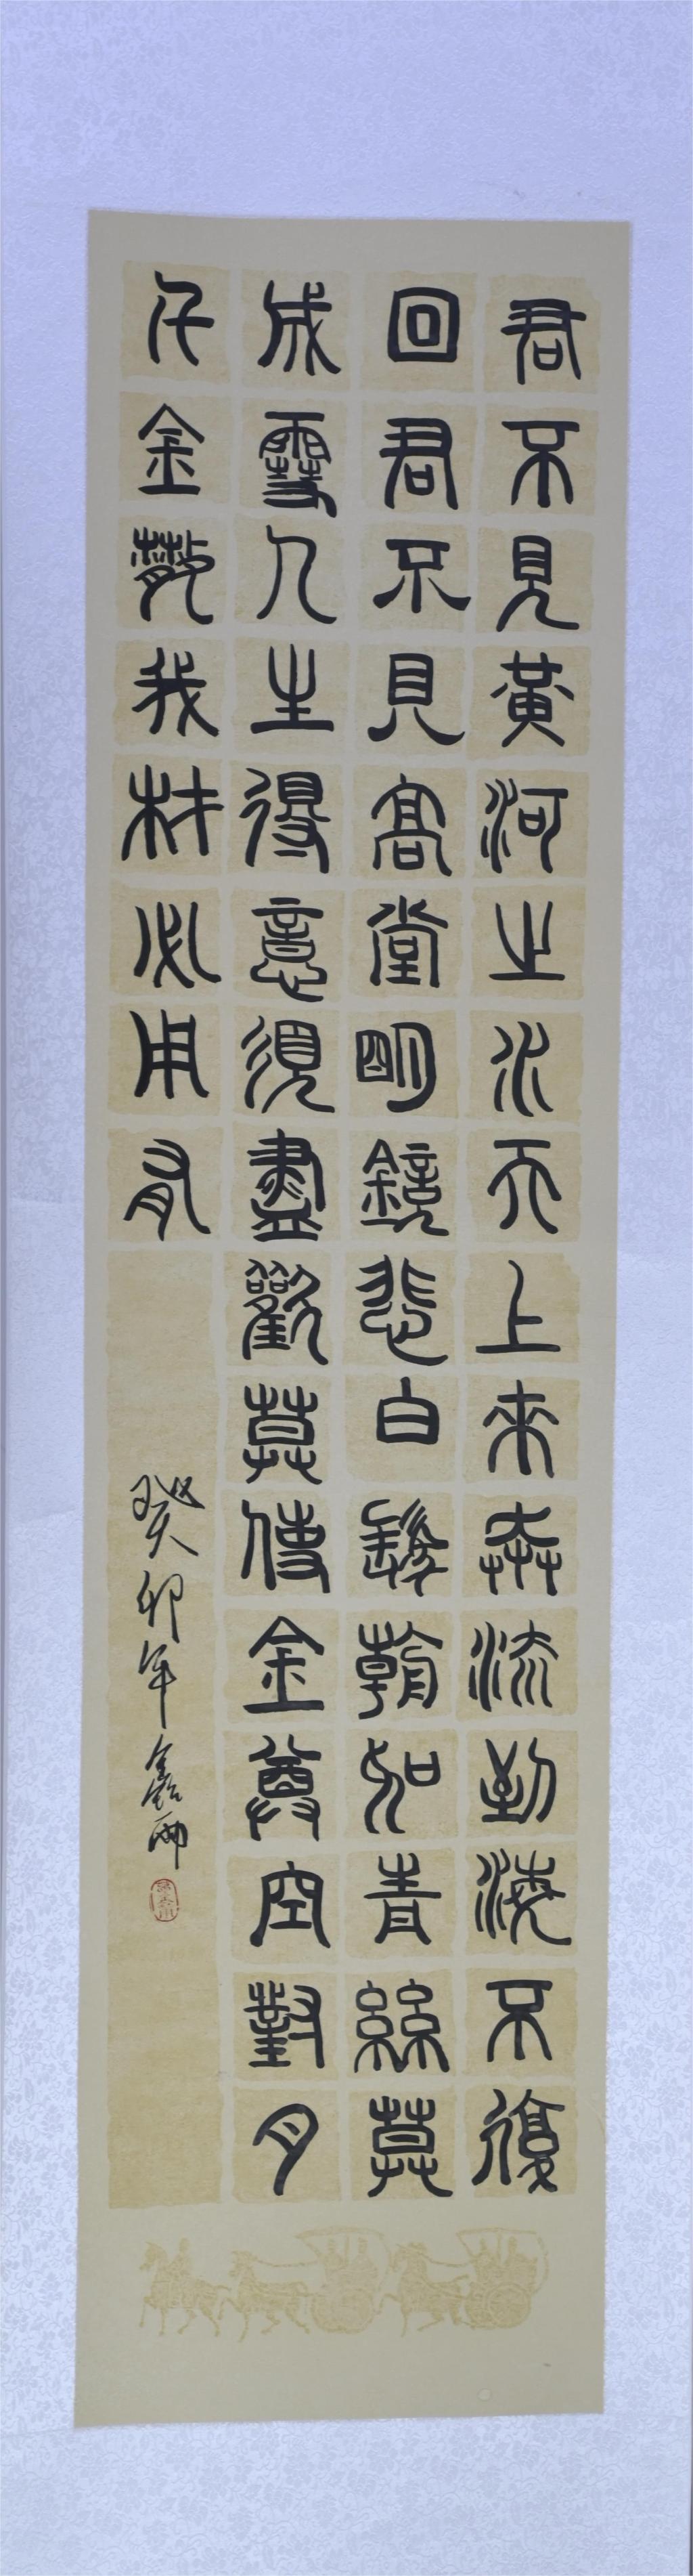 君不見黃河之水天上來奔流到海不復
回君不見高堂明鏡悲白髮朝如青絲莫
成雪人生得意須盡歡莫使金尊空對月
千金散我材必用有
癸卯年鑫雨